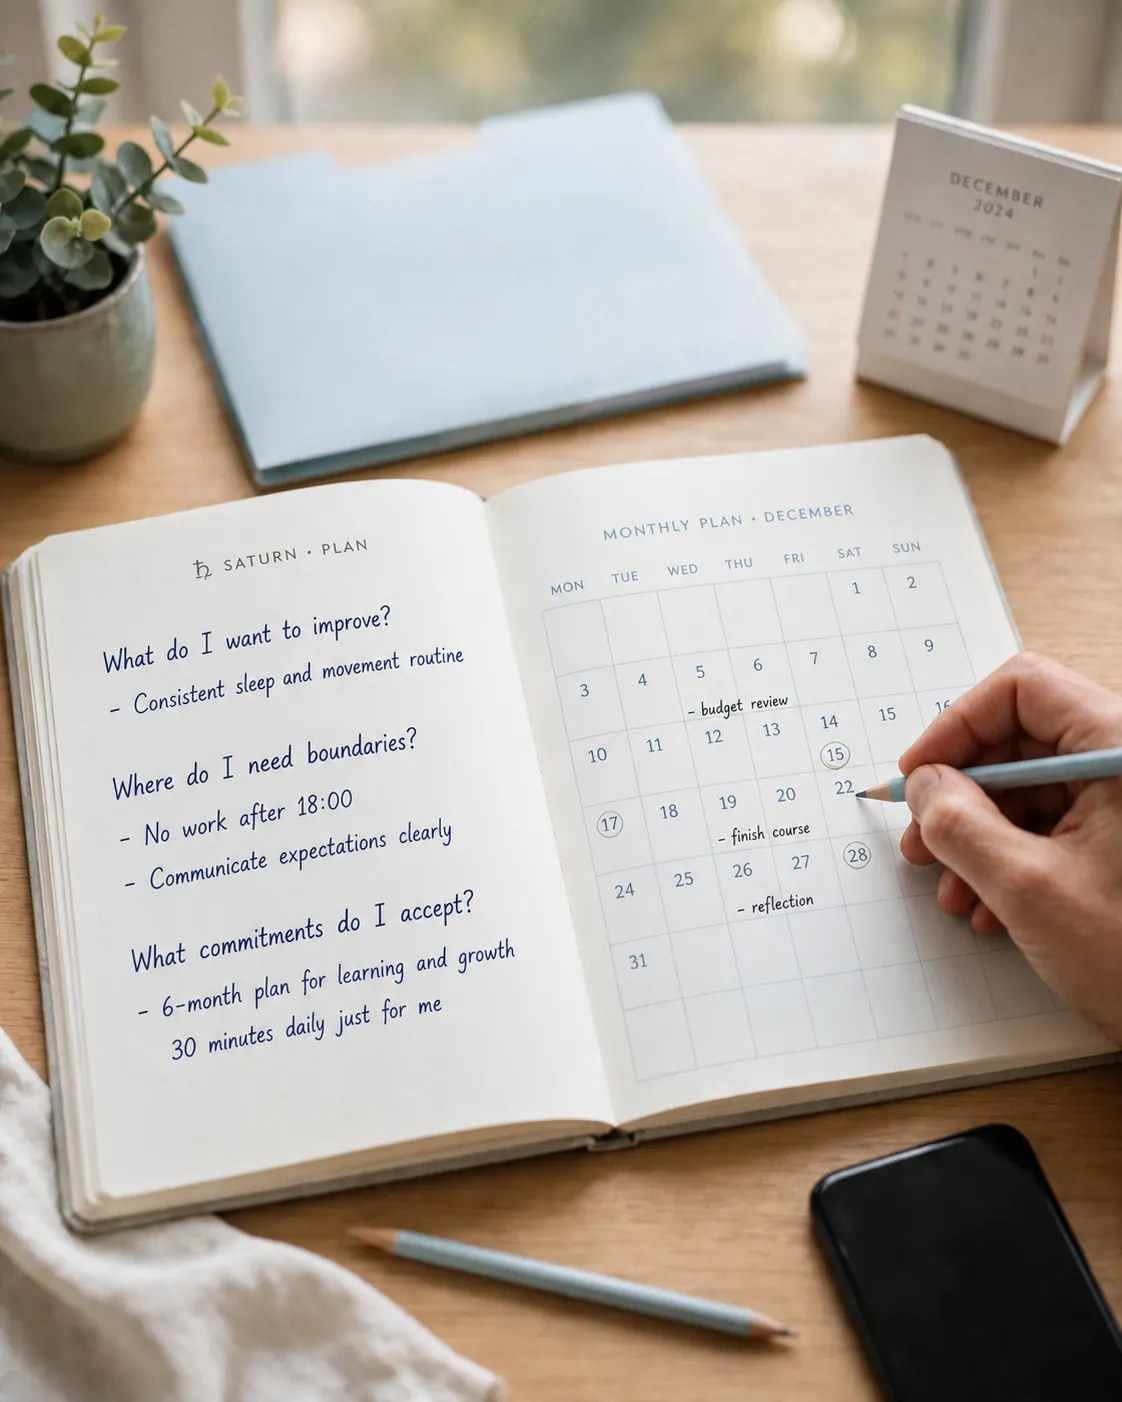 DECEMBER
2024
♄ SATURN • PLAN
What do I want to improve?
- Consistent sleep and movement routine
Where do I need boundaries?
- No work after 18:00
- Communicate expectations clearly
What commitments do I accept?
- 6-month plan for learning and growth
30 minutes daily just for me
MONTHLY PLAN • DECEMBER
MON TUE WED THU FRI SAT SUN
1 2
3 4 5 6 7 8 9
- budget review
10 11 12 13 14 15 16
15
17 18 19 20 22
- finish course
24 25 26 27 28
- reflection
31